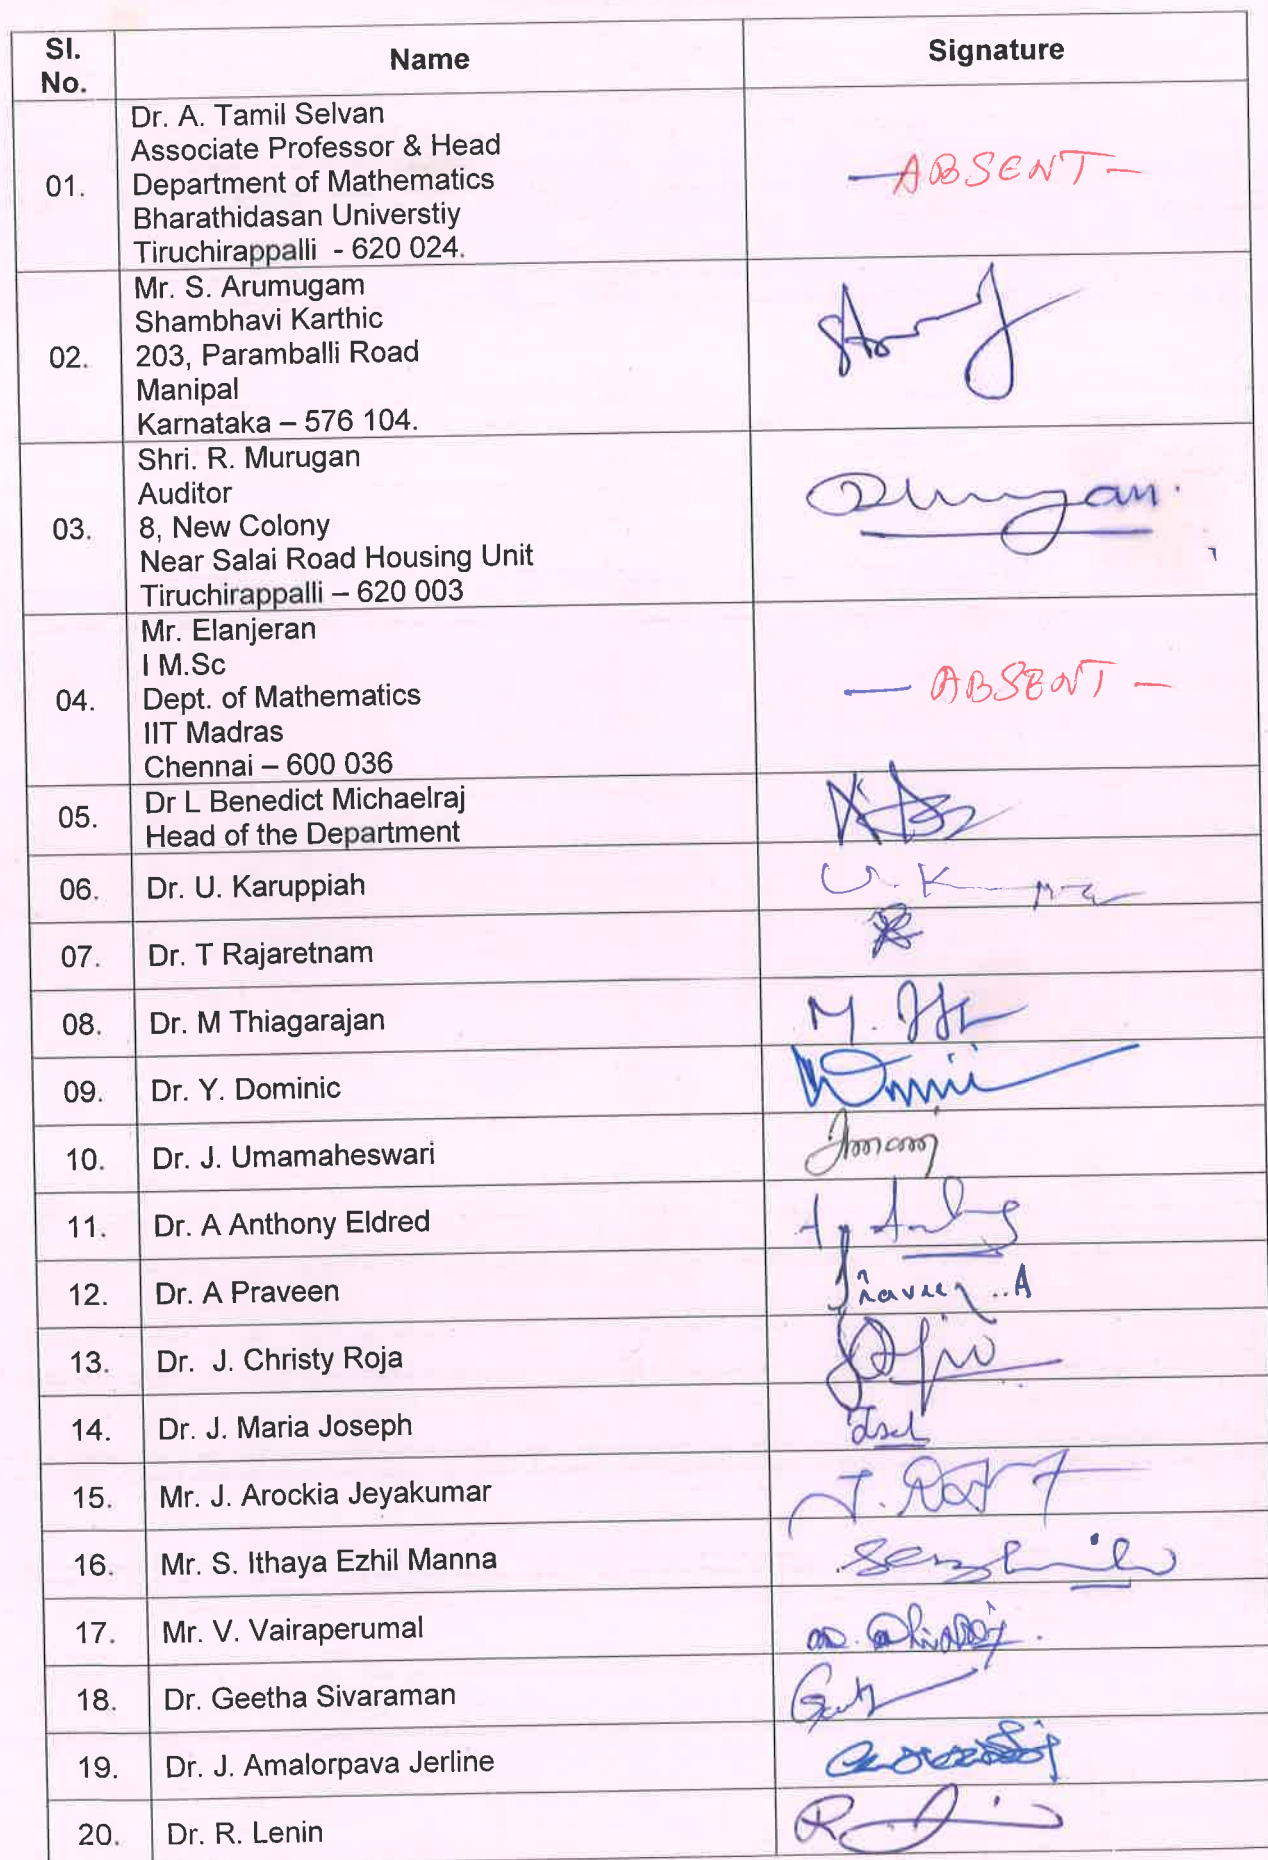 Sl.
No.
Name
Signature
01.
Dr. A. Tamil Selvan
Associate Professor & Head
Department of Mathematics
Bharathidasan Universtiy
Tiruchirappalli - 620 024.
— ABSENT –
02.
Mr. S. Arumugam
Shambhavi Karthic
203, Paramballi Road
Manipal
Karnataka – 576 104.
03.
Shri. R. Murugan
Auditor
8, New Colony
Near Salai Road Housing Unit
Tiruchirappalli – 620 003
04.
Mr. Elanjeran
I M.Sc
Dept. of Mathematics
IIT Madras
Chennai – 600 036
— ABSENT –
05.
Dr L Benedict Michaelraj
Head of the Department
06.
Dr. U. Karuppiah
07.
Dr. T Rajaretnam
08.
Dr. M Thiagarajan
09.
Dr. Y. Dominic
10.
Dr. J. Umamaheswari
11.
Dr. A Anthony Eldred
12.
Dr. A Praveen
Praveen..A
13.
Dr. J. Christy Roja
14.
Dr. J. Maria Joseph
15.
Mr. J. Arockia Jeyakumar
16.
Mr. S. Ithaya Ezhil Manna
17.
Mr. V. Vairaperumal
18.
Dr. Geetha Sivaraman
19.
Dr. J. Amalorpava Jerline
20.
Dr. R. Lenin